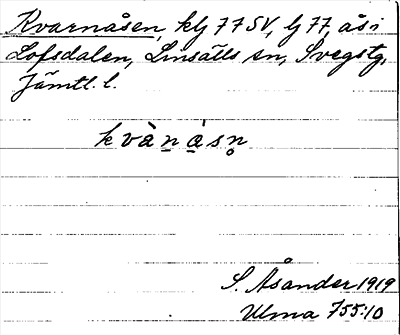 Kvarnåsen, klj 77 SV, lj 77, ås i
Lofsdalen, Linsälls sn, Svegs tg,
Jämtl. l.
kvànàsn̥
S. Åsander 1919
Ulma 755:10